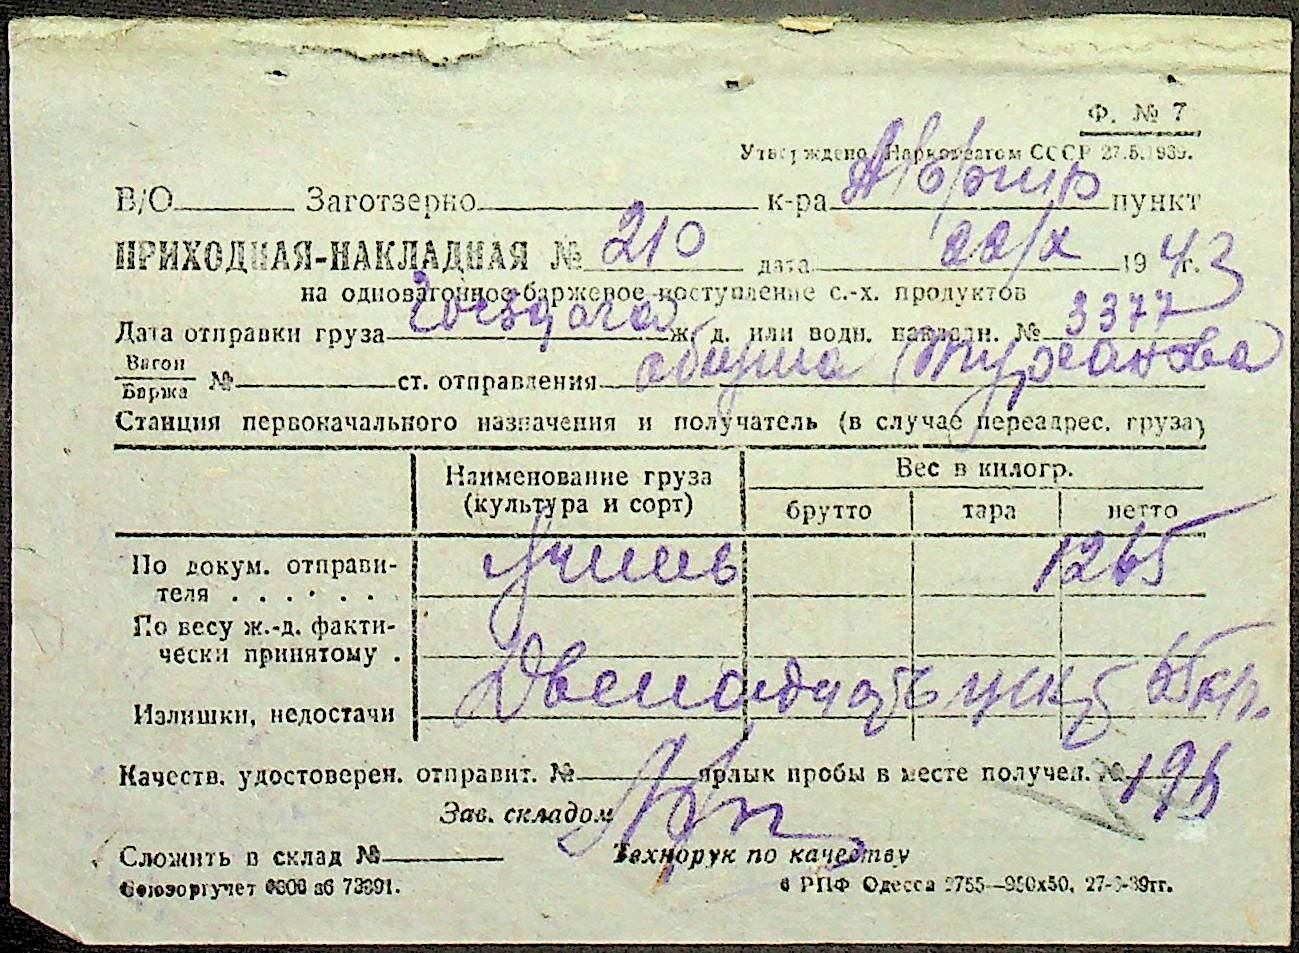 Ф. № 7
Утверждено Наркомзагом СССР 27.5.1939.
В/О Заготзерно к-ра пункт
ПРИХОДНАЯ-НАКЛАДНАЯ № 210 дата 22/X 1943 г.
на одновагонное-баржевое поступление с.-х. продуктов
Дата отправки груза ж. д. или водн. накладн. № 3377
Вагон
Баржа № ст. отправления община
Станция первоначального назначения и получатель (в случае переадрес. груза)
Наименование груза (культура и сорт) Вес в килогр.
брутто тара нетто
По докум. отправи-
теля . . . . . . Ячмень 1265
По весу ж.-д. факти-
чески принятому .
Излишки, недостачи Двенадцать 65 кгр.
Качеств. удостоверен. отправит. № ярлык пробы в месте получен. № 196
Зав. складом
Сложить в склад № Технорук по качеству
Союзоргучет 73991. 6 РПФ Одесса